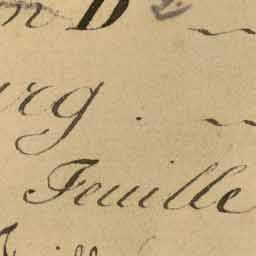 n D
rg . ~
Feuille